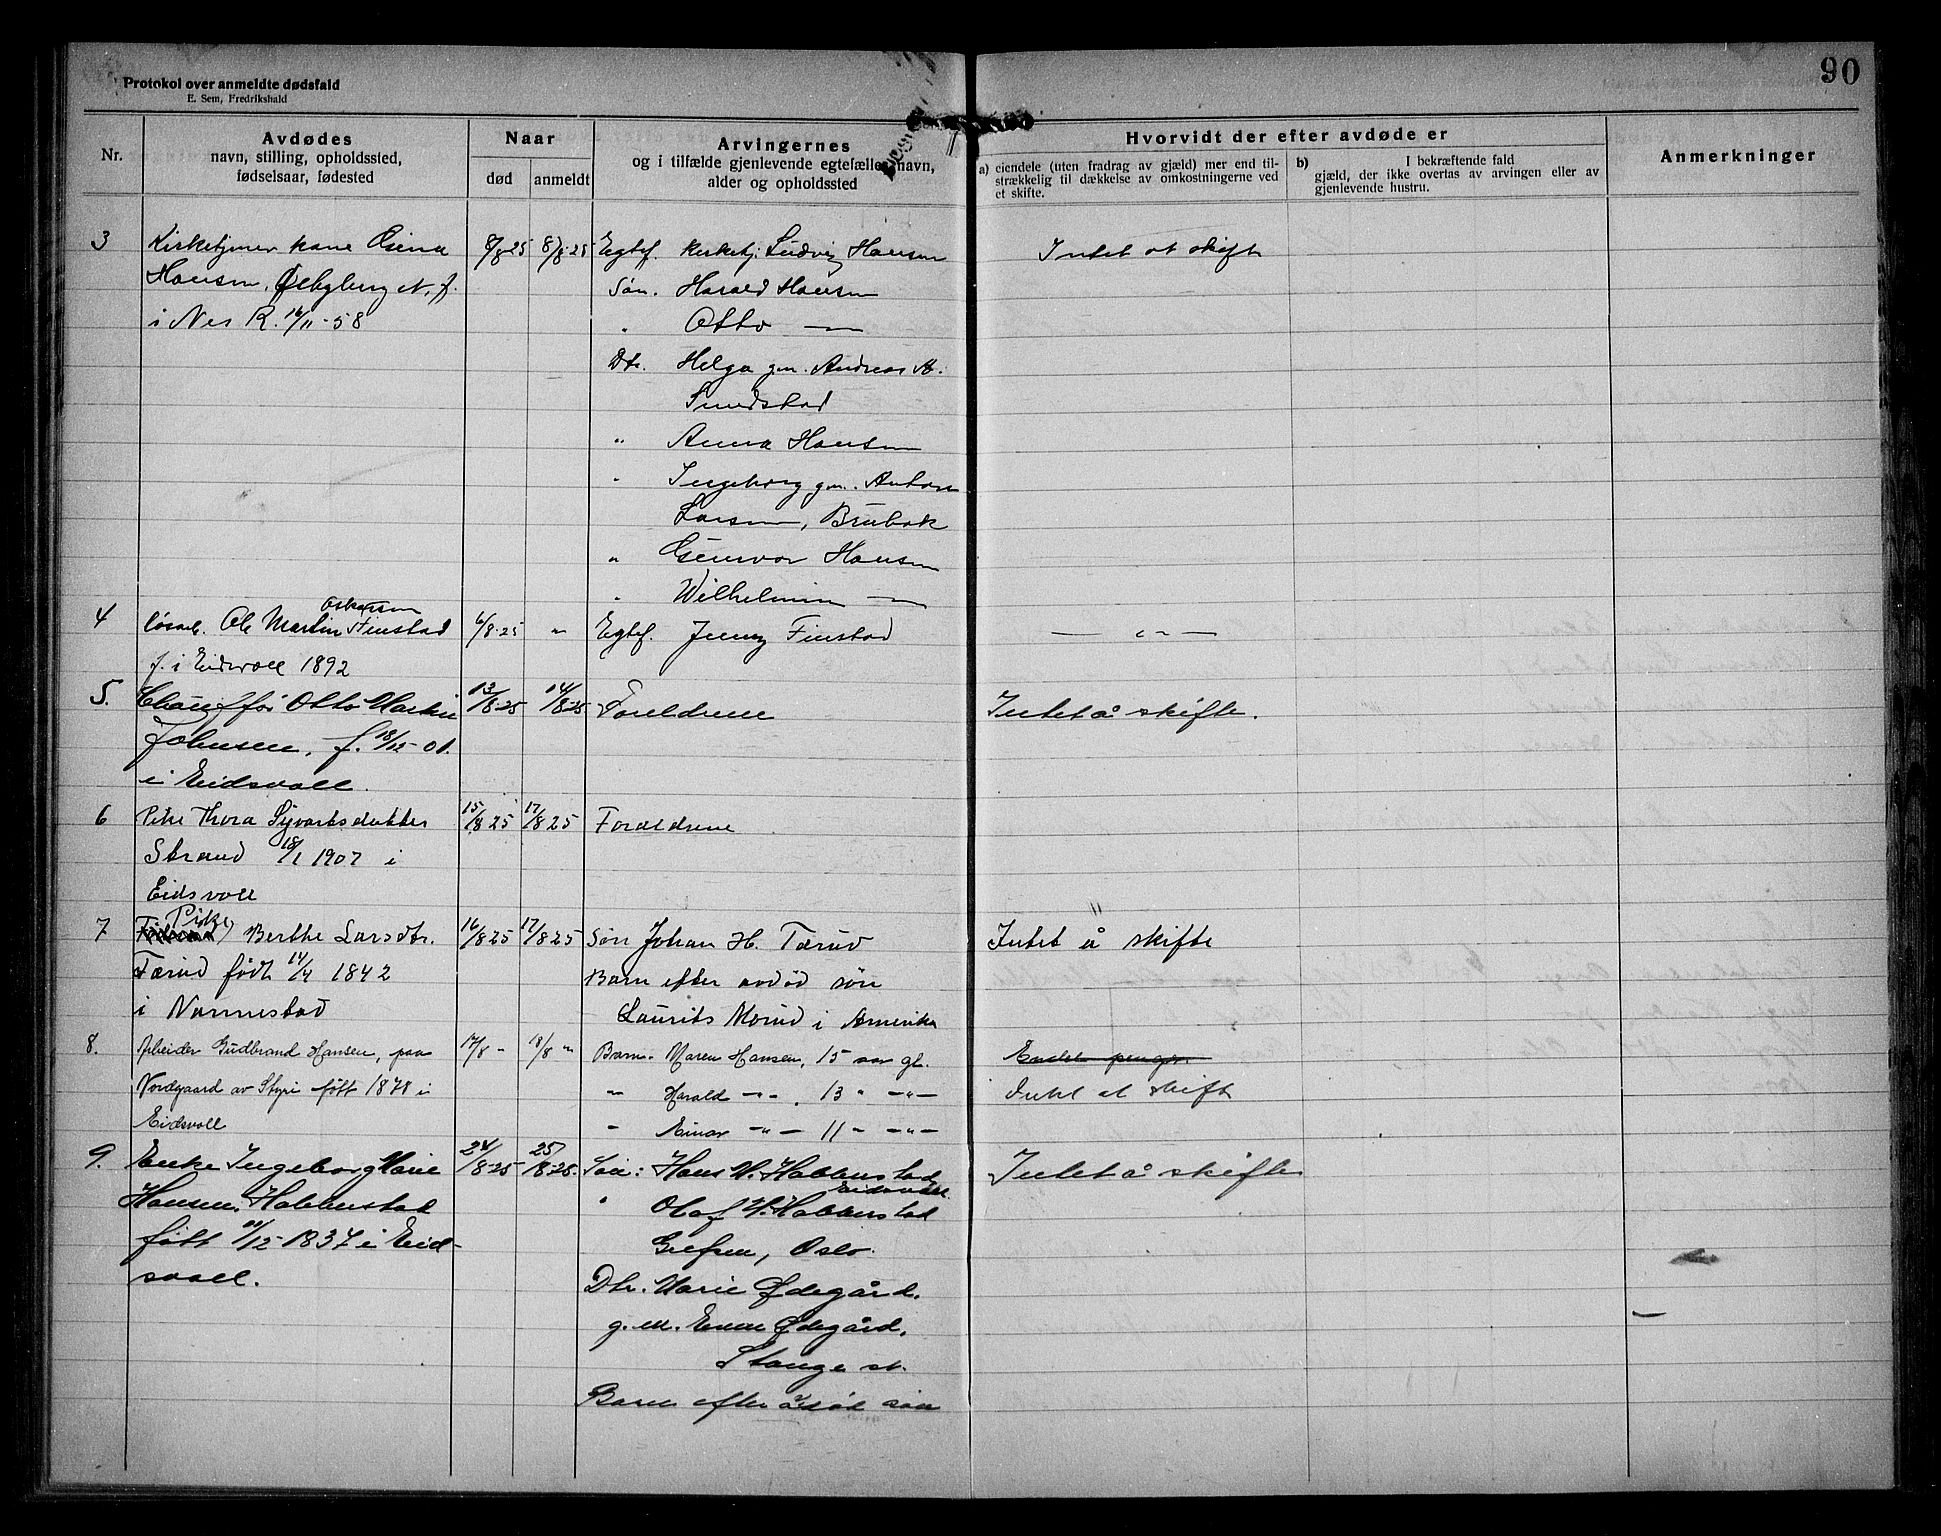 90
Protokol over anmeldte dødsfald
E. Sem, Fredrikshald
Nr.
Avdødes
navn, stilling, opholdssted,
fødselsaar, fødested
Naar
død
anmeldt
Arvingernes
og i tilfælde gjenlevende egtefælles navn,
alder og opholdssted
Hvorvidt der efter avdøde er
a) eiendele (uten fradrag av gjæld) mer end til-
strækkelig til dækkelse av omkostningerne ved
et skifte.
b) I bekræftende fald
gjæld, der ikke overtas av arvingen eller av
gjenlevende hustru.
Anmerkninger
3 Kirketjener kone Osina 8/8-25 8/8-25 Egtef. kirketj. Ludvig Hansen Intet at skift
Hansen, N, f. Søn. Harald Hansen
i Nes R. 16/11-58 " Otto —
Dtr. Helga gm. Andreas A.
Smedstad
" Anna Hansen
" Ingeborg gm. Anton
Larsen, Brubak
" Gunvor Hansen
" Wilhelmine —
4 løsarb. Ole Martin Oskarsen Finstad 6/8-25 " Egtef. Jenny Finstad — " —
f. i Eidsvoll 1892
5. Chauffør Otto Martin 13/8-25 14/8-25 Foreldrene Intet å skifte.
Johnsen, f. 18/12-01.
i Eidsvoll.
6 Pike Thora Syvertsdatter 15/8 25 17/8 25 Foreldrene
Strand 18/1 1907 i
Eidsvoll
"
7 Pike Berthe Larsdtr. 16/8 25 17/8 25 Søn Johan H. Tærud Intet å skifte
Tærud født 14/4 1842 Barn efter avdød søn
i Nannestad Laurits Morud i Amerika
8. Arbeider Gudbrand Hansen, paa 17/8 " 18/8 " Barn. Maren Hansen, 15 aar gl.
Nordgaard av Styri født 1878 i " Harald —"—, 13 " —"— Intet at skift
Eidsvoll " Einar —"— 11 " —"—
9. Enke Ingeborg Marie 24/8-25 25/8-25. Søn: Hans H. Habberstad Intet å skifte
Eidsvoll.
Hansen, Habberstad " Olaf H. Habberstad
født 21/12-1837 i Eid- Grefsen, Oslo.
svoll. Dtr. Marie Ødegård.
g. m. Even Ødegård,
Stange st.
Barn efter avdød søn